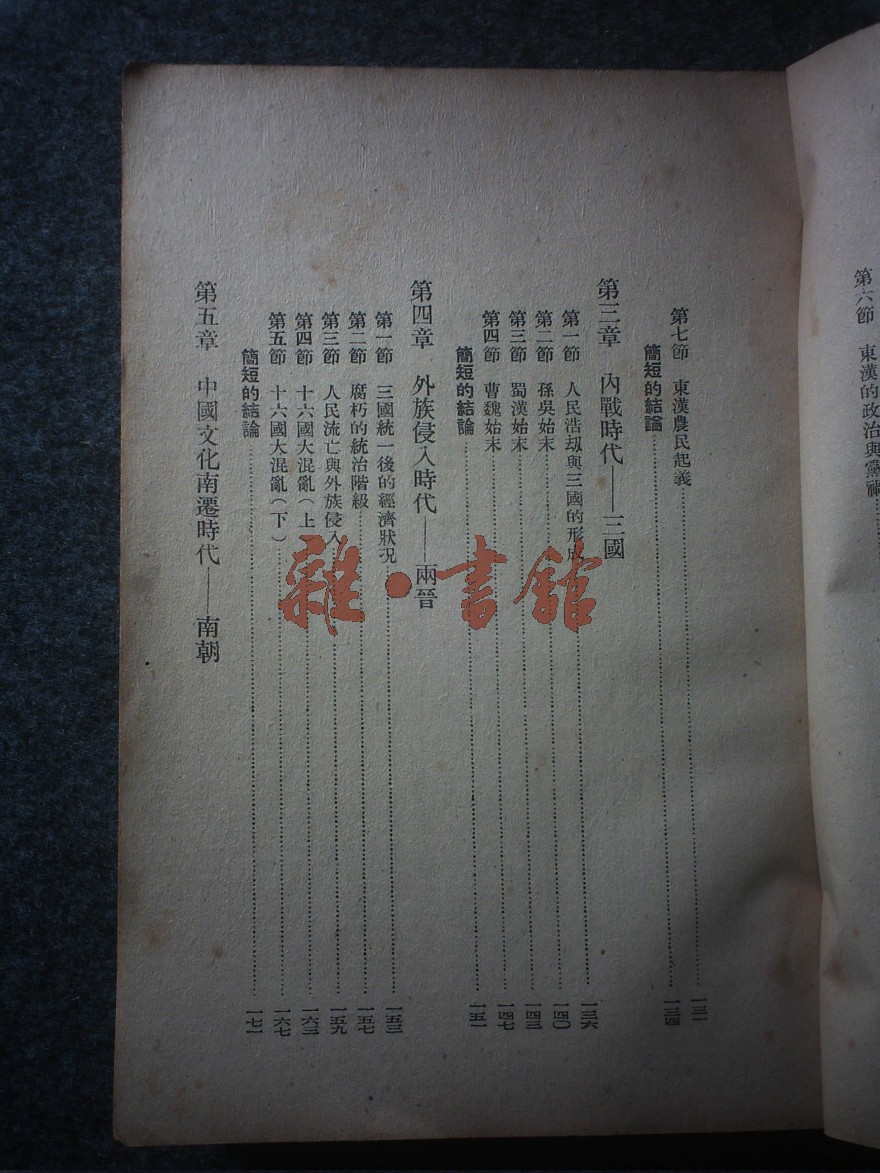 第六節 東漢的政治與黨禍
第七節 東漢農民起義 一三一
簡短的結論 一三四
第三章 內戰時代——三國
第一節 人民浩劫與三國的形成 一三六
第二節 孫吳始末 一四〇
第三節 蜀漢始末 一四三
第四節 曹魏始末 一四七
簡短的結論 一五一
第四章 外族侵入時代——兩晉
第一節 三國統一後的經濟狀况 一五三
第二節 腐朽的統治階級 一五七
第三節 人民流亡與外族侵入 一五九
第四節 十六國大混亂(上) 一六三
第五節 十六國大混亂(下) 一六七
簡短的結論 一七一
第五章 中國文化南遷時代——南朝
雜·書館